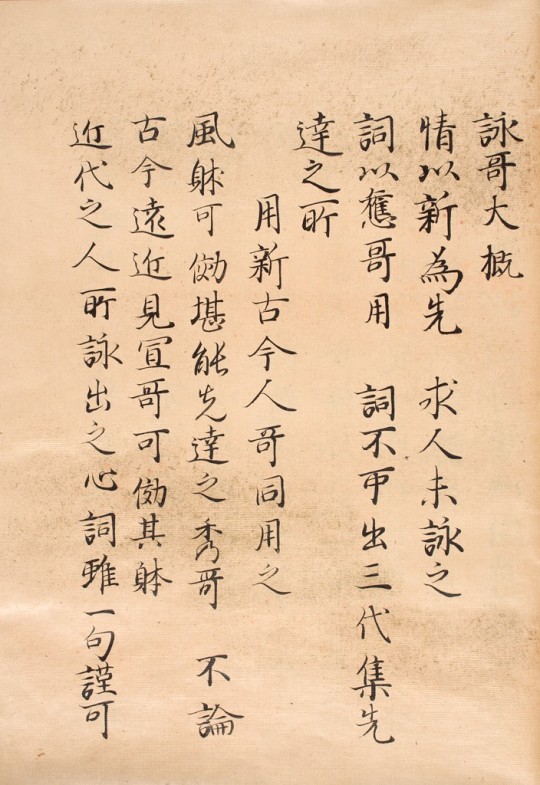 詠哥大概
情以新為先　求人未詠之
詞以舊哥用　詞不可出三代集先
達之所
用新古今人哥同用之
風躰可俲堪能先達之秀哥　不論
古今遠近見宜哥可俲其躰
近代之人所詠出之心詞雖一句謹可